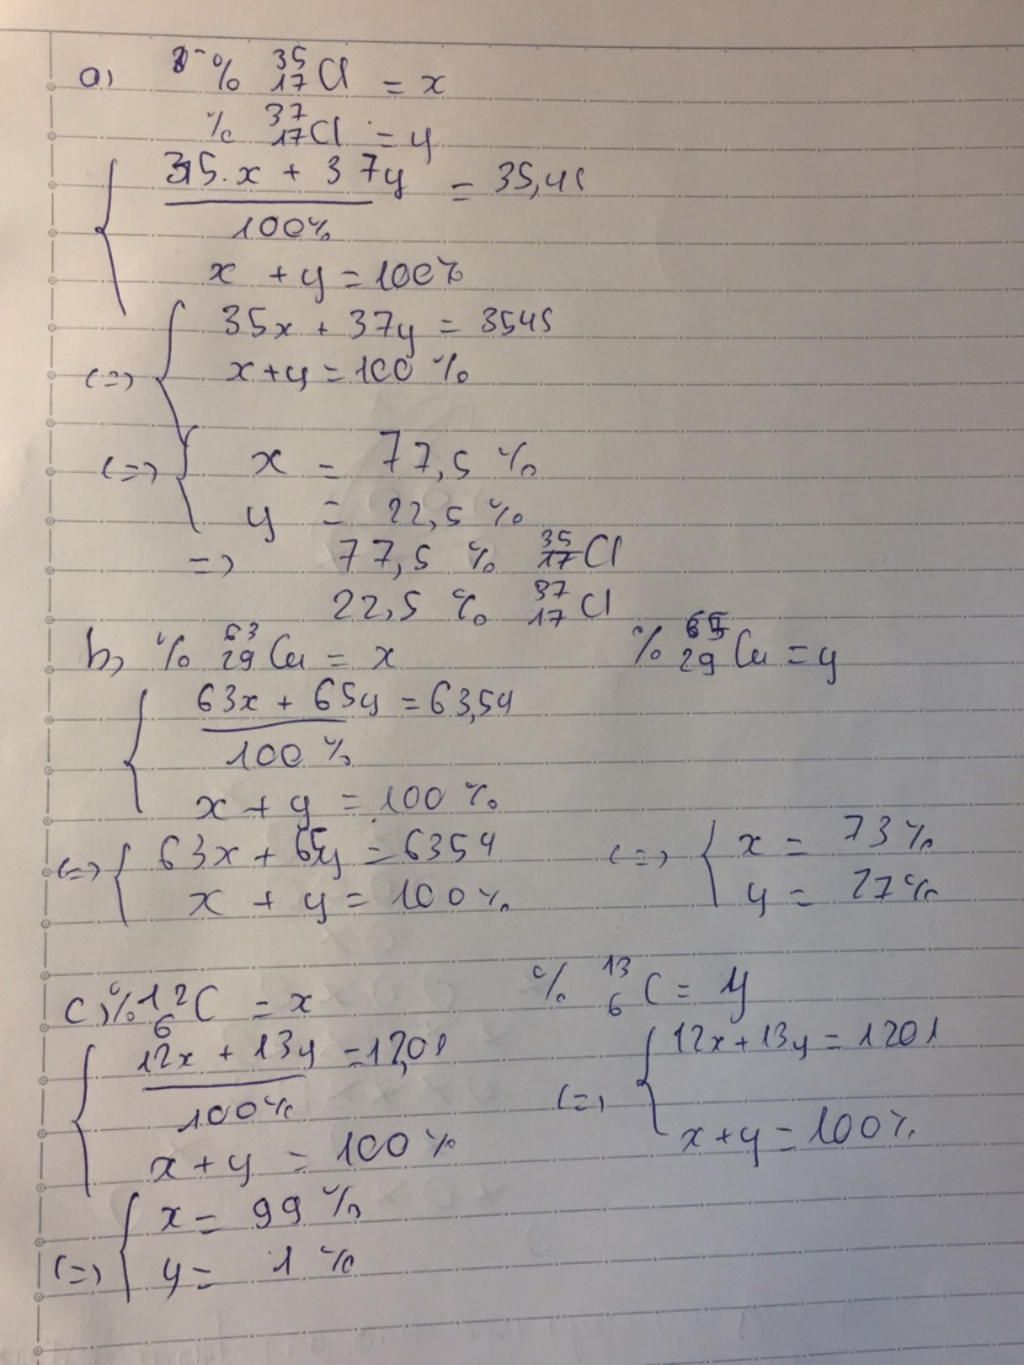 a) % ³⁵₁₇Cl = x
% ³⁷₁₇Cl = y
35.x + 37y = 35,45
100%
x + y = 100%
(=) 35x + 37y = 3545
x+y = 100 %
(=) x = 77,5 %
y = 22,5 %
=) 77,5 % ³⁵₁₇Cl
22,5 % ³⁷₁₇Cl
b) % ⁶³₂₉Cu = x % ⁶⁵₂₉Cu = y
63x + 65y = 63,54
100 %
x + y = 100 %
(=) 63x + 65y = 6354 (=) x = 73 %
x + y = 100% y = 27 %
c) % ¹²₆C = x % ¹³₆C = y
12x + 13y = 12,01 12x + 13y = 1201
100% (=)
x + y = 100 % x + y = 100%
x = 99 %
(=) y = 1 %